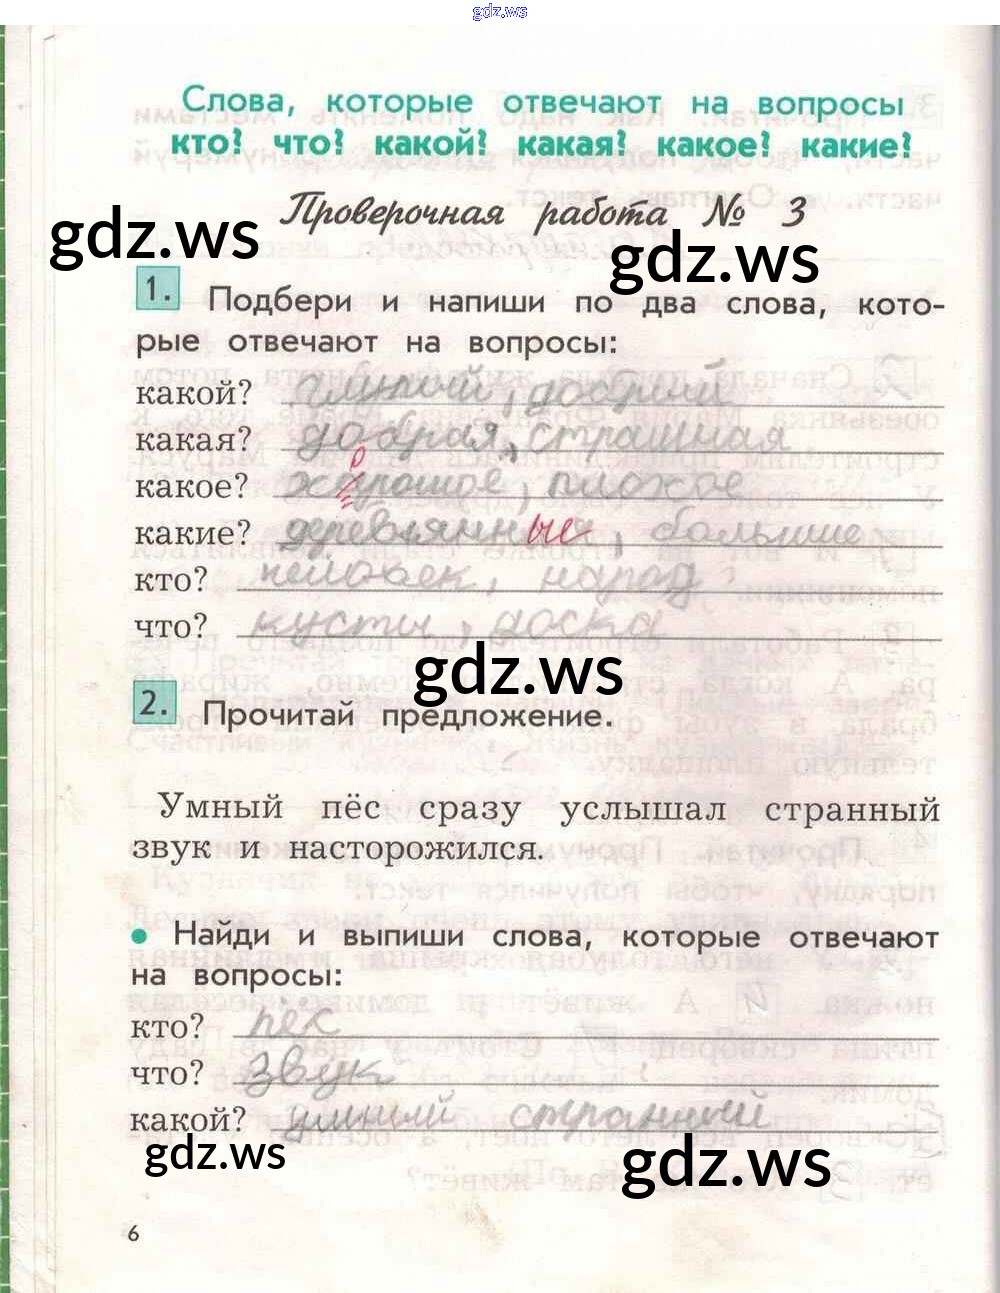 gdz.ws
Слова, которые отвечают на вопросы
кто? что? какой? какая? какое? какие?
Проверочная работа № 3
gdz.ws
gdz.ws
1. Подбери и напиши по два слова, кото-
рые отвечают на вопросы:
какой? умный, добрый
какая? добрая, страшная
какое? хорошое, плохое
какие? деревянные, большие
кто? человек, народ
что? кусты, доска
gdz.ws
2. Прочитай предложение.
Умный пёс сразу услышал странный
звук и насторожился.
• Найди и выпиши слова, которые отвечают
на вопросы:
кто? пёс
что? звук
какой? умный странный
gdz.ws
gdz.ws
6